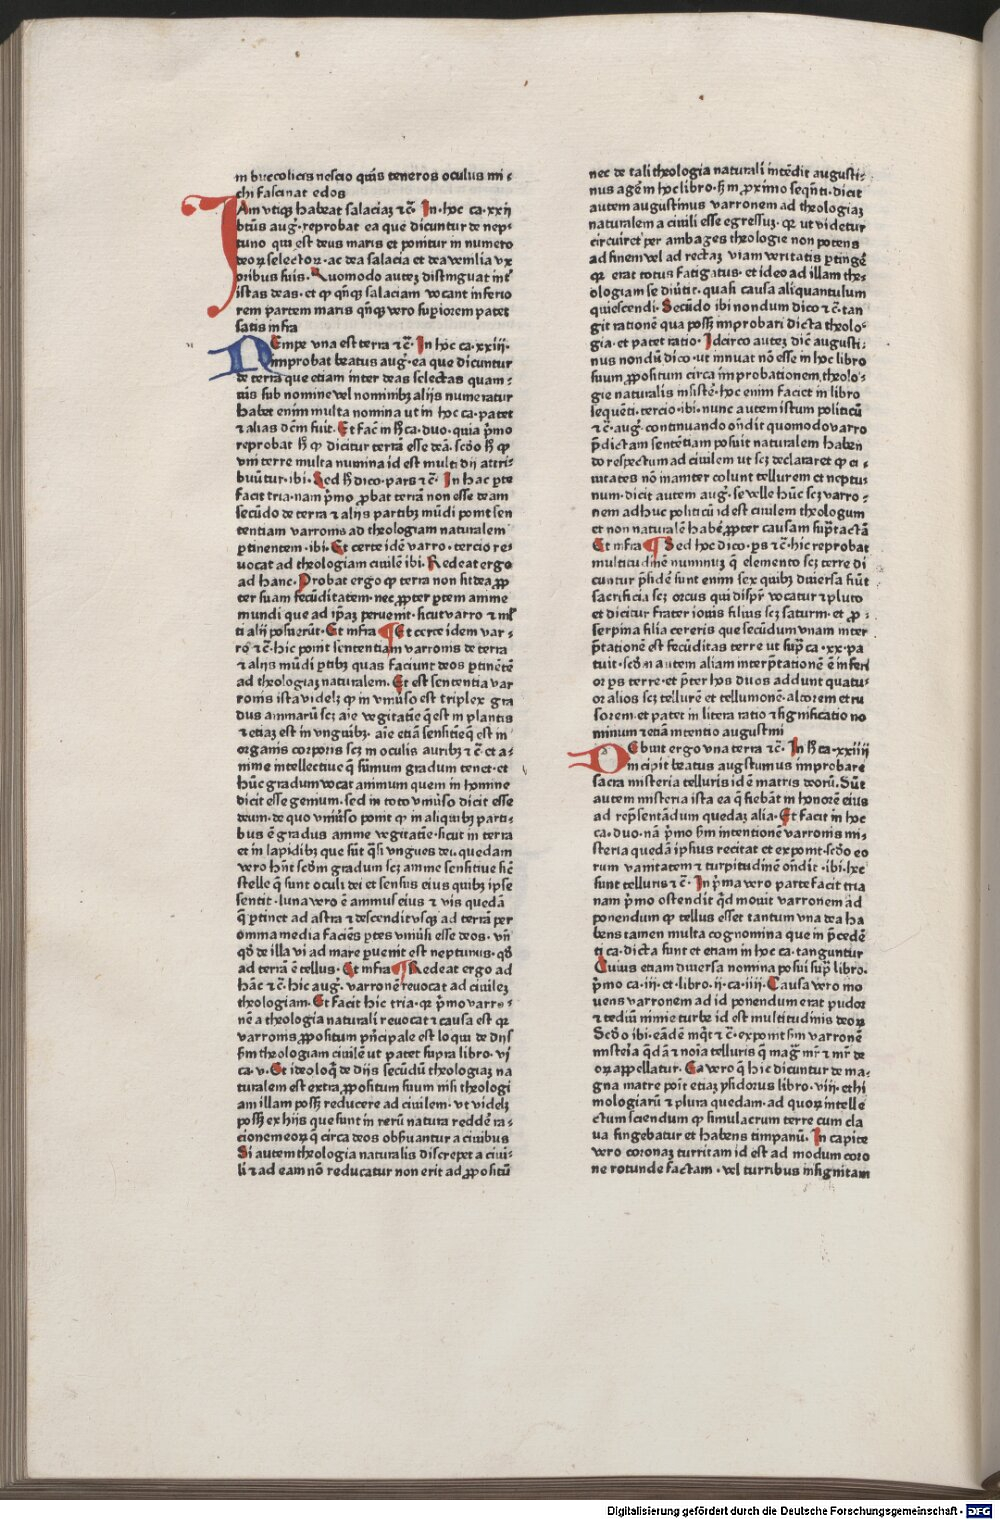 in bucolicis nescio quis teneros oculus mi-
chi fascinat edos
IAm vtiqꝫ habeat salaciaꝫ ⁊c̄. In hoc ca. xxii
btūs aug̃. reprobat ea que dicuntur de nep-
tuno qui est deus maris et ponitur in numero
deoꝝ selectoꝝ. ac dea salacia et dea venilia vx
oribus suis. Quomodo auteꝫ distinguat int̃
istas deas. et ꝙ qn̄qꝫ salaciam vocant inferio
rem partem maris qn̄qꝫ vero suꝑiorem patet
satis infra
NEmpe vna est terra ⁊c̄. In hoc ca. xxiii.
improbat beatus aug̃. ea que dicuntur
de terra que etiam inter deas selectas quam-
uis sub nomine vel nominibꝫ alijs numeratur
Habet enim multa nomina ut in hoc ca. patet
et alias dcm̄ fuit. Et facit in hͦ ca. duo. quia pͥmo
reprobat hͦ ꝙ dicitur terrā esse deā. scdo hͦ ꝙ
vni terre multa numina id est multi dij attri-
buūtur. ibi. Sed hͦ dico. pars ⁊c̄. In hac ꝑte
facit tria. nam pͥmo ꝓbat terrā non esse deam
secūdo de terra ⁊ alijs partibꝫ mūdi ponit sen
tentiam varronis ad theologiam naturalem
ꝑtinentem. ibi. Et certe idē varro. tercio re-
uocat ad theologiam ciuilē ibi. Redeat ergo
ad hanc. Probat ergo ꝙ terra non sit dea ꝓp
ter suam fecūditatem. nec ꝓpter ꝑtem anime
mundi que ad ip̄aꝫ peruenit. sicut varro ⁊ ml̄
ti alij posuerūt. Et infra ¶ Et certe idem var-
ro ⁊c̄. hic ponit sententiam varronis de terra
⁊ alijs mūdi ꝑtibꝫ quas faciunt deos ꝑtinētē
ad theologiaꝫ naturalem. Et est sententia var
ronis ista videlꝫ ꝙ in vniũso est triplex gra
dus animarū scꝫ aīe vegitatiē q̄ est in plantis
⁊ etiaꝫ est in vnguibꝫ. aīe etiā sensitiē q̄ est in
organis corporis scꝫ in oculis auribꝫ ⁊c̄. et a-
nime intellectiue q̄ sūmum gradum tenet. et
hūc gradum vocat animum quem in homine
dicit esse genium. sed in toto vniũso dicit esse
deum. de quo vniũso ponit ꝙ in aliquibꝫ parti-
bus ē gradus anime vegitatiē. sicut in terra
et in lapidibꝫ que sūt q̄si vngues dei. quedam
vero hn̄t scdm̄ gradum scꝫ anime sensitiue sic̄
stelle q̄ sunt oculi dei et sensus eius quibꝫ ipse
sentit. luna vero ē animus eius ⁊ vis quedā
q̄ ꝑtinet ad astra ⁊ descendit vsqꝫ ad terrā per
omnia media faciēs ꝑtes vniũsi esse deos. vn̄
qd̄ de illa vi ad mare ꝑuenit est neptunus. qd̄
ad terrā ē tellus. Et infra ¶ Redeat ergo ad
hāc ⁊c̄. hic aug̃. varronē reuocat ad ciuileꝫ
theologiam. Et facit hic tria. qꝛ pͥmo varro-
nē a theologia naturali reuocat ⁊ causa est qꝛ
varronis ꝓpositum pͥncipale est loqui de dijs
scd̄m theologiam ciuilē ut patet supra libro. vi
ca. v. Et ideo loq̄ de dijs secūdū theologiaꝫ na
turalem est extra ꝓpositum suum nisi theologi
am illam possꝫ reducere ad ciuilem. vt videlꝫ
possꝫ ex hijs que sunt in rerū natura reddē ra-
cionem eoꝝ q̄ circa deos obs̃uantur a ciuibus
Si autem theologia naturalis discrepet a ciui-
li ⁊ ad eam nō reducatur non erit ad ꝓpositū
nec de tali theologia naturali intēdit augusti-
nus agē in hoc libro. hͦ in ꝓximo seqn̄ti. dicit
autem augustinus varronem ad theologiaꝫ
naturalem a ciuili esse egressuꝫ. qꝛ ut videtur
circuiret per ambages theologie non potens
ad finem vel ad rectaꝫ viam veritatis ꝑtingē
qꝛ erat totus fatigatus. et ideo ad illam the-
ologiam se diũtit. quasi causa aliquantulum
quiescendi. Secūdo ibi nondum dico ⁊c̄. tan
git rationē qua possꝫ improbari dicta theolo-
gia. et patet ratio. Idcirco auteꝫ dic̄ augusti-
nus nondū dico. ut innuat nō esse in hoc libro
suum ꝓpositum circa improbationem theolo-
gie naturalis insistē. hoc enim faciet in libro
sequēti. tercio. ibi. nunc autem istum politicū
⁊c̄. aug̃. continuando on̄dit quomodo varro
p̄dictam sentētiam posuit naturalem haben
do respectum ad ciuilem ut scꝫ declararet ꝙ ci-
uitates nō inaniter colunt tellurem et neptu-
num. dicit autem aug̃. se velle hūc scꝫ varro-
nem adhuc politicū id est ciuilem theologum
et non naturalē habē ꝓpter causam supͣ tactā
Et infra ¶ Sed hoc dico. ꝑs ⁊c̄. hic reprobat
multitudinē numinuꝫ q̄ elemento scꝫ terre di
cuntur p̄sidē sunt enim sex quibꝫ diuersa fiūt
sacrificia scꝫ orcus qui dispr̄ vocatur ⁊ pluto
et dicitur frater iouis filius scꝫ saturni. et ꝓ-
serpina filia cereris que secūdum vnam inter
p̄tationē est fecūditas terre ut supͣ ca. xx. pa
tuit. scdm̄ autem aliam interp̄tationē ē inferi
or ꝑs terre. et p̄ter hos duos addunt quatu-
or alios scꝫ tellurē et tellumonē. altorem et ru
sorem. et patet in litera ratio ⁊ significatio no
minum ⁊ etiā intentio augustini
DEbuit ergo vna terra ⁊c̄. In hͦ ca. xxiiii
incipit beatus augustinus improbare
sacra misteria telluris idē matris deorū. Sūt
autem misteria ista ea q̄ fiebāt in honorē eius
ad rep̄sentādum quedaꝫ alia. Et facit in hoc
ca. duo. nā pͥmo scd̄m intentionē varronis mi-
steria quedā ipsius recitat et exponit. scdo eo
rum vanitatem ⁊ turpitudinē on̄dit. ibi. hec
sunt telluris ⁊c̄. In pͥma vero parte facit tria
nam pͥmo ostendit qd̄ mouit varronem ad
ponendum ꝙ tellus esset tantum vna dea ha
bens tamen multa cognomina que in p̄cedē
ti ca. dicta sunt et etiam in hoc ca. tanguntur
Cuius etiam diuersa nomina posui supͣ libro.
pͥmo ca. iii. et. libro. ii. ca. iiii. Causa vero mo
uens varronem ad id ponendum erat pudor
⁊ tediū nimie turbe id est multitudinis deoꝝ
Scdo ibi. eādē mq̄t ⁊c̄. exponit scd̄m varronē
misteria q̄dā ⁊ noīa telluris q̄ mag̃ mr̄ ⁊ mr̄ de
oꝝ appellatur. Ea vero q̄ hic dicuntur de ma-
gna matre poīt etiaꝫ ysidorus libro. viij. ethi
mologiarū ⁊ plura quedam. ad quoꝝ intelle
ctum sciendum ꝙ simulacrum terre cum cla
ua fingebatur et habens timpanū. In capite
vero coronaꝫ turritam id est ad modum coro
ne rotunde factam. vel turribus insignitam
Digitalisierung gefördert durch die Deutsche Forschungsgemeinschaft - DFG